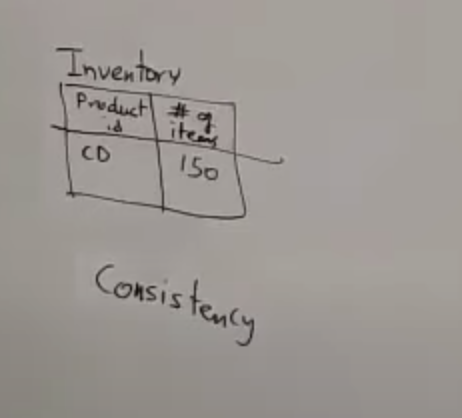 Inventory
Product id # of items
CD 150
Consistency